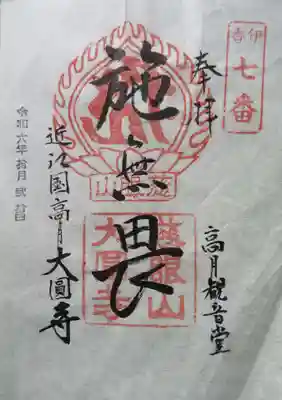 伊香
七番
奉拝
高月観音堂
施無畏
慈眼山
大圓寺
近江国高月大圓寺
令和六年拾月